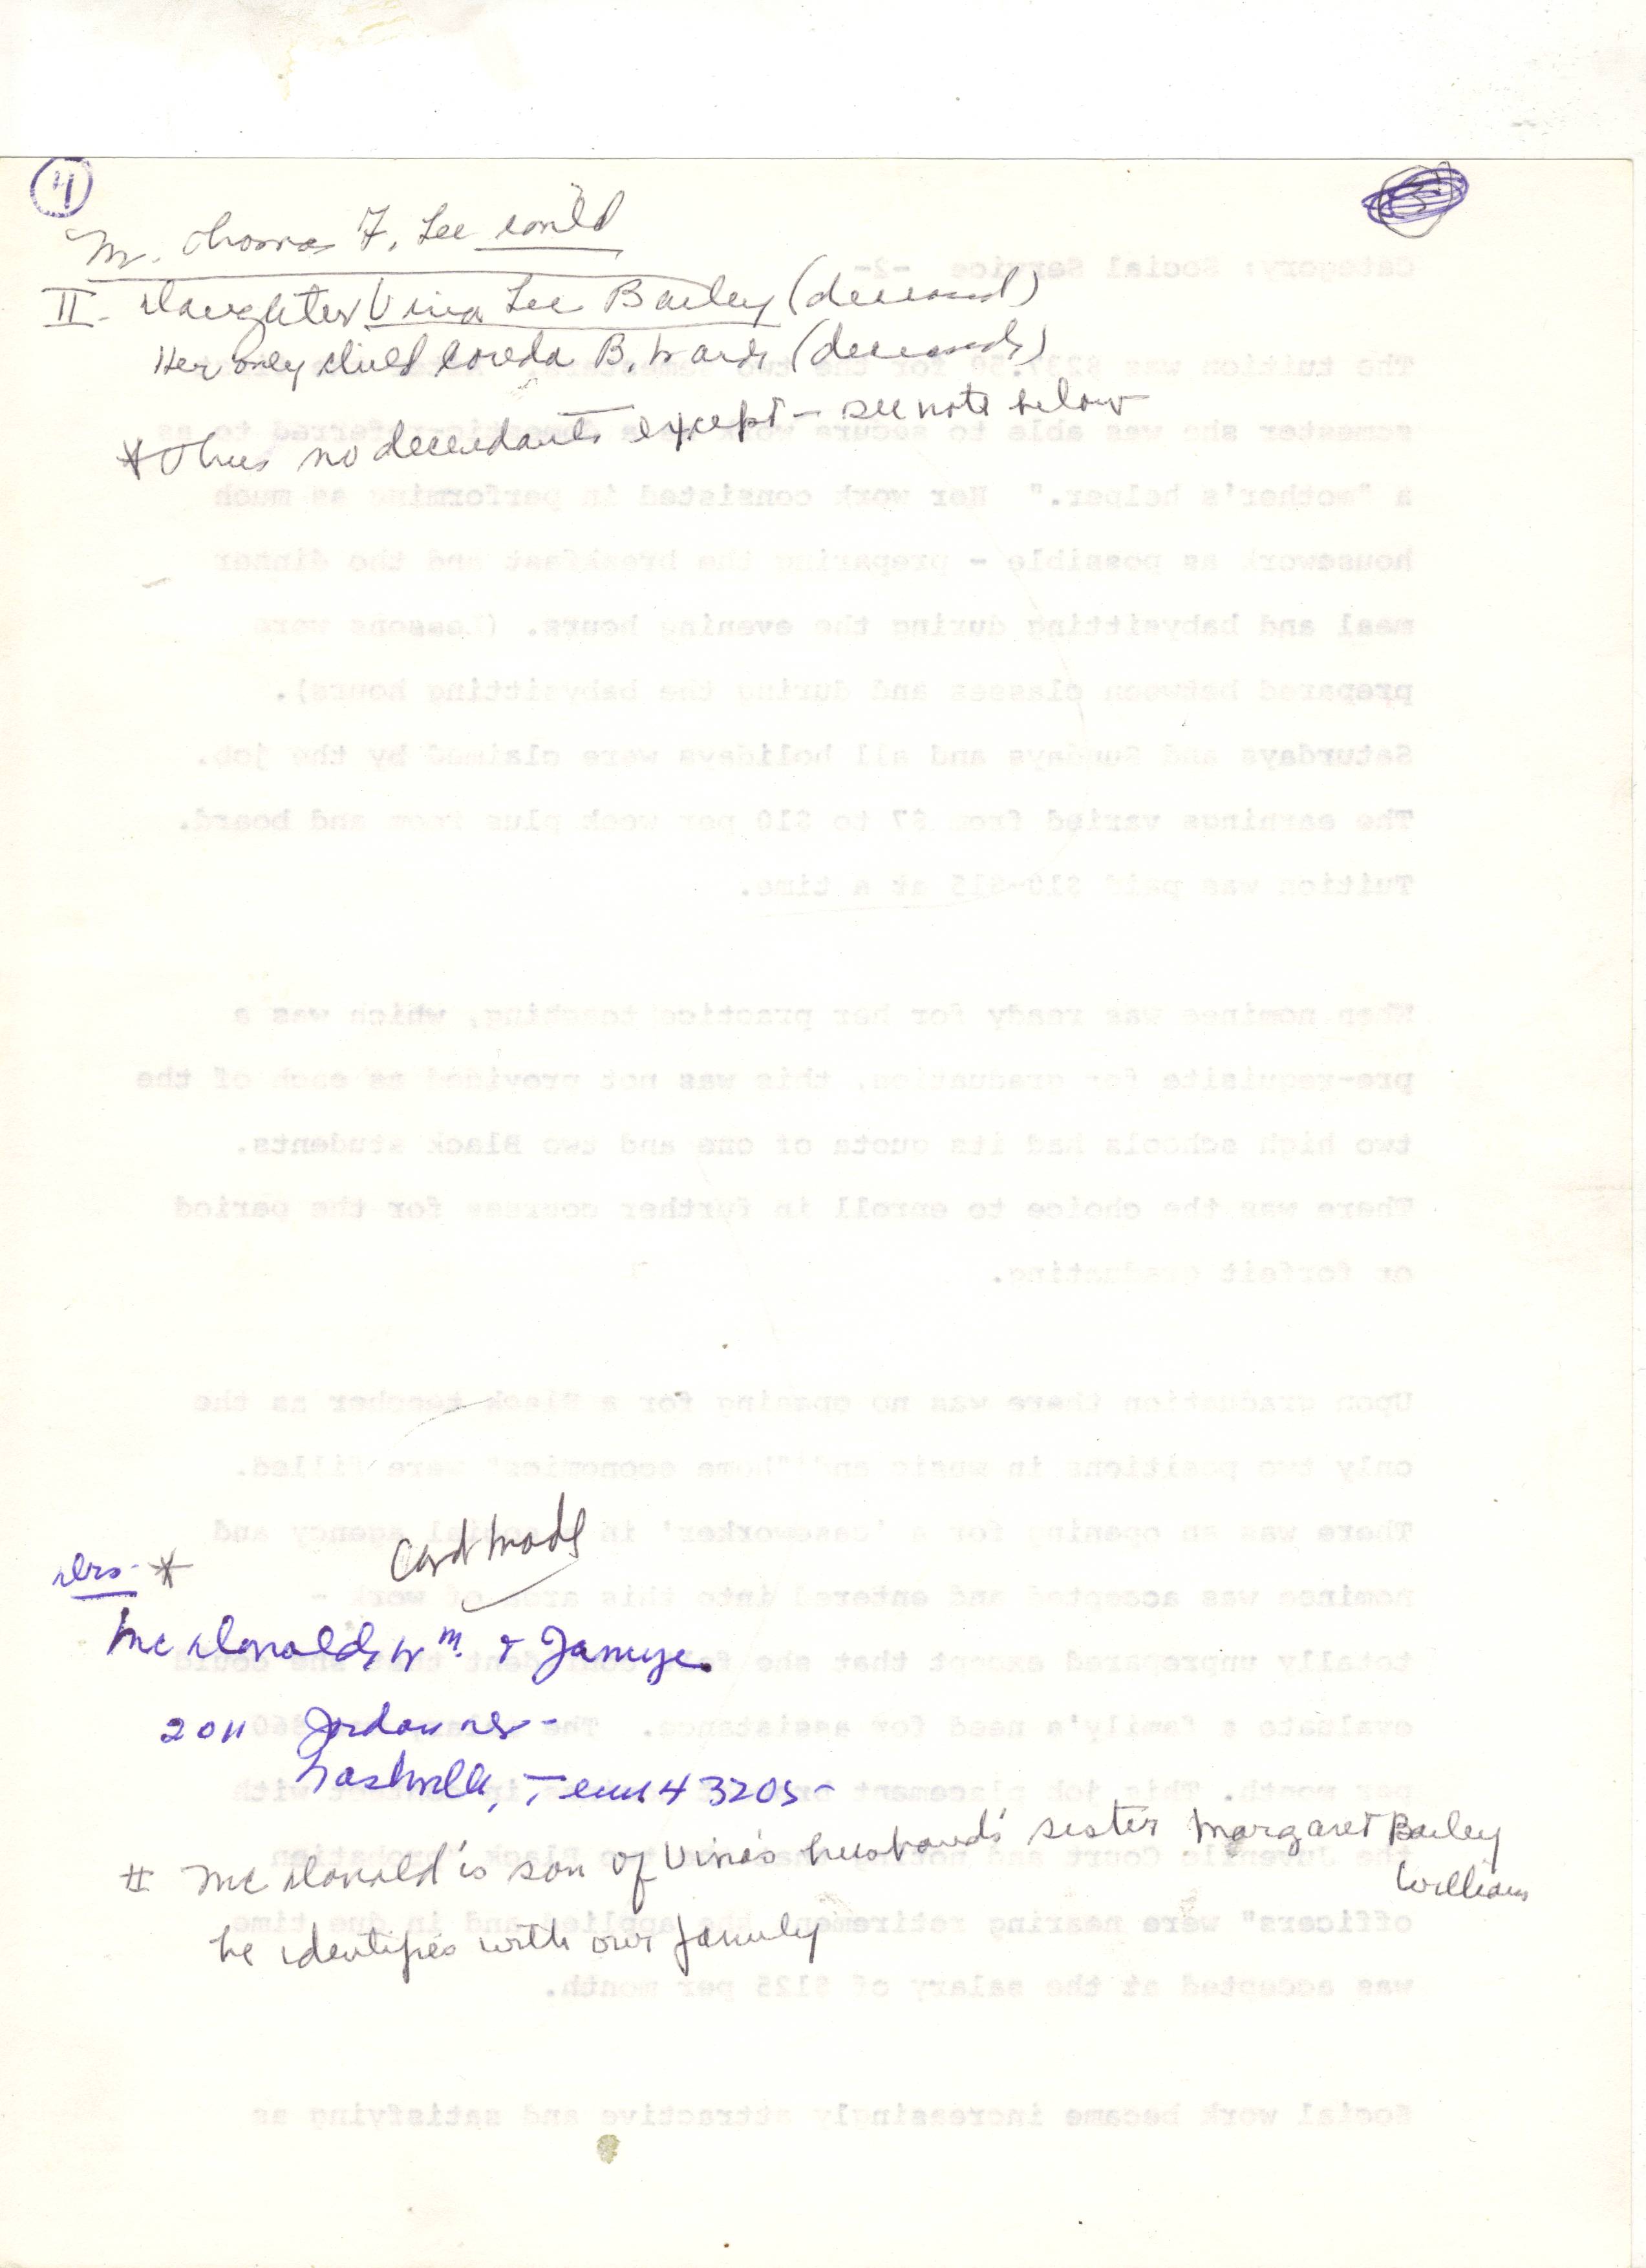 4
M. Thomas F. Lee cont'd
II. Daughter Vina Lee Bailey (deceased)
Her only child Loreda B. Ward (deceased)
* Thus no decendants except - see note below
Drs. *
Card made
McDonald, Wm. & Jamye.
2011 Jordan
Nashville, Tenn 43205-
# McDonald is son of Vina's husband's sister Margaret Bailey
William
he identifies with our family
Category: Social Service -2-
The tuition was $237.50 for the two semesters.
semester she was able to secure work as a domestic-referred to as
a "mother's helper." Her work consisted in performing as much
housework as possible - preparing the breakfast and the dinner
meal and babysitting during the evening hours. (Lessons were
prepared between classes and during the babysitting hours).
Saturdays and Sundays and all holidays were claimed by the job.
The earnings varied from $7 to $10 per week plus room and board.
Tuition was paid $10-$15 at a time.
When nominee was ready for her practice teaching, which was a
pre-requisite for graduation, this was not provided as each of the
two high schools had its quota of one and two Black students.
There was the choice to enroll in further courses for the period
or forfeit graduating.
Upon graduation there was no opening for a Black teacher as the
only two positions in music and "home economics" were filled.
There was an opening for a 'caseworker' in a social agency and
nominee was accepted and entered into this area of work -
totally unprepared except that she felt confident that she could
evaluate a family's need for assistance. The salary was $60
per month. This job placement in contact with
the Juvenile Court and noting that the two Black "probation
officers" were nearing retirement she applied and in due time
was accepted at the salary of $125 per month.
Social work became increasingly attractive and satisfying as